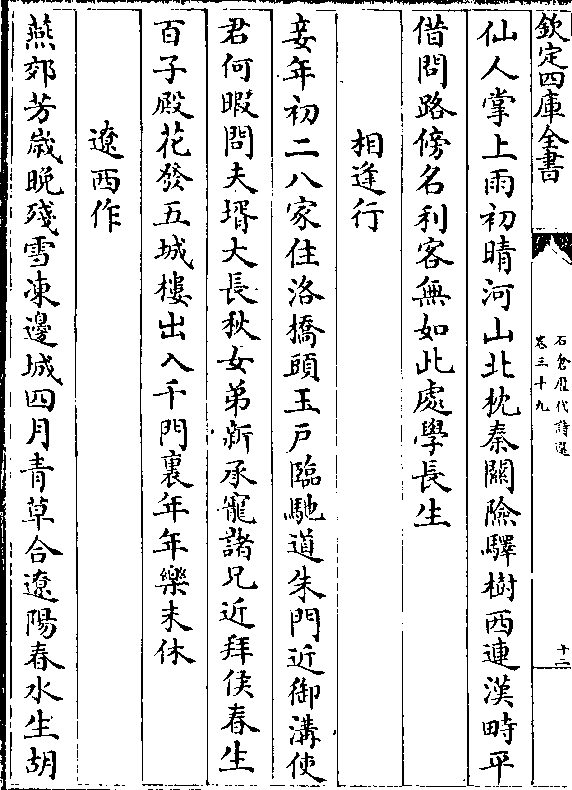 欽定四庫全書
石倉歷代詩選
卷三十九
十二
仙人掌上雨初晴河山北枕秦關險驛樹西連漢畤平
借問路傍名利客無如此處學長生
相逢行
妾年初二八家住洛橋頭玉戶臨馳道朱門近御溝使
君何暇問夫壻大長秋女弟新承寵諸兄近拜侯春生
百子殿花發五城樓出入千門裏年年樂未休
遼西作
燕郊芳歲晚殘雪凍邊城四月青草合遼陽春水生胡